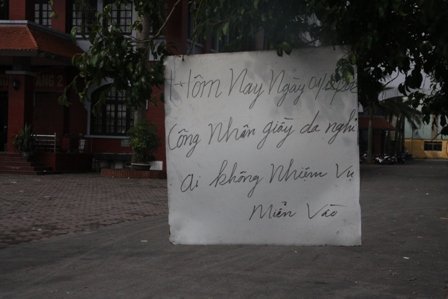 Hôm Nay Ngày
Công Nhân giầy da nghỉ
ai không Nhiệm Vụ
Miễn Vào